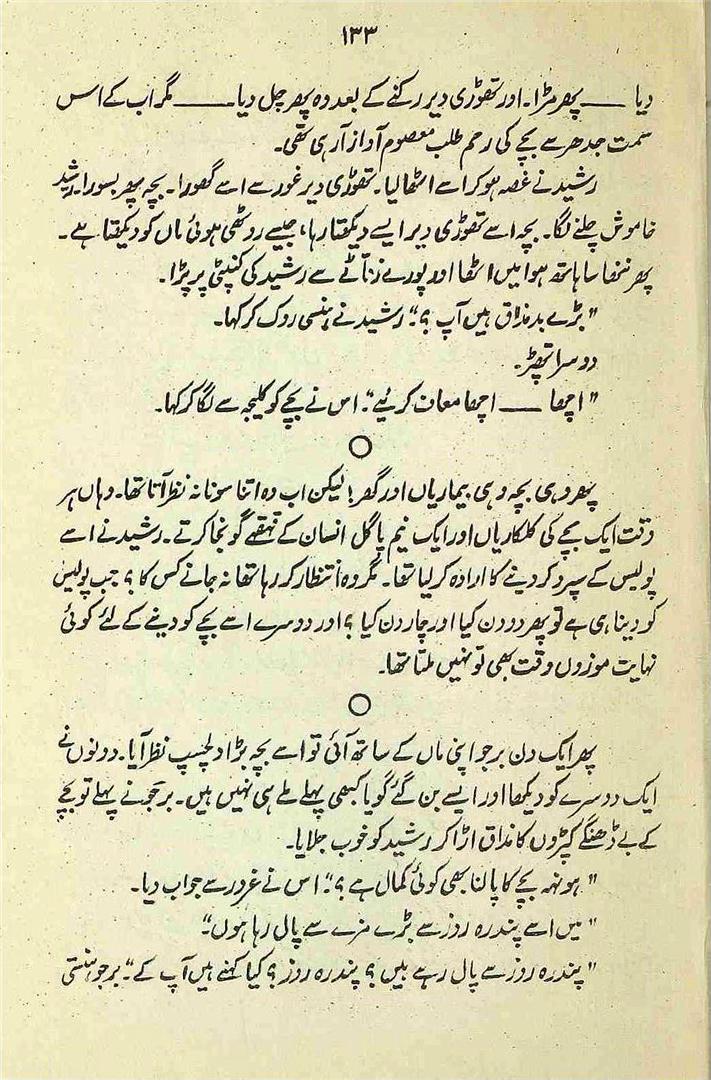 ۱۳۳
دیا ــــ پھر مڑا۔ اور تھوڑی دیر رکنے کے بعد وہ پھر چل دیا۔ ــــ مگر اب کے اس
سمت جدھر سے بچے کی رحم طلب معصوم آواز آ رہی تھی۔
رشید نے غصہ ہو کر اسے اٹھا لیا۔ تھوڑی دیر غور سے اسے گھورا۔ بچہ پھر بسورا۔ رشید
خاموش چلنے لگا۔ بچہ اسے تھوڑی دیر ایسے دیکھتا رہا، جیسے روٹھی ہوئی ماں کو دیکھتا ہے۔
پھر ننھا سا ہاتھ ہوا میں اٹھا اور پورے زناٹے سے رشید کی کنپٹی پر پڑا۔
"بڑے بد مذاق ہیں آپ؟" رشید نے ہنسی روک کر کہا۔
دوسرا تھپڑ۔
"اچھا ــــ اچھا معاف کریئے"۔ اس نے بچے کو کلیجہ سے لگا کر کہا۔
○
پھر وہی بچہ وہی بیماریاں اور گھر! لیکن اب وہ اتنا سونا نہ نظر آتا تھا۔ وہاں ہر
وقت ایک بچے کی کلکاریاں اور ایک نیم پاگل انسان کے قہقہے گونجا کرتے۔ رشید نے اسے
پولیس کے سپرد کر دینے کا ارادہ کر لیا تھا۔ مگر وہ انتظار کر رہا تھا نہ جانے کس کا؟ جب پولیس
کو دینا ہی ہے تو پھر دو دن کیا اور چار دن کیا؟ اور دوسرے اسے بچے کو دینے کے لئے کوئی
نہایت موزوں وقت بھی تو نہیں ملتا تھا۔
○
پھر ایک دن برجو اپنی ماں کے ساتھ آئی تو اسے بچہ بڑا دلچسپ نظر آیا۔ دونوں نے
ایک دوسرے کو دیکھا اور ایسے بن گئے گویا کبھی پہلے ملے ہی نہیں ہیں۔ برجو نے پہلے تو بچے
کے بے ڈھنگے کپڑوں کا مذاق اڑا کر رشید کو خوب جلایا۔
"ہونہہ بچے کا پالنا بھی کوئی کمال ہے؟" اس نے غرور سے جواب دیا۔
"میں اسے پندرہ روز سے بڑے مزے سے پال رہا ہوں"۔
"پندرہ روز سے پال رہے ہیں؟ پندرہ روز؟ کیا کہنے ہیں آپ کے"۔ برجو ہنستی